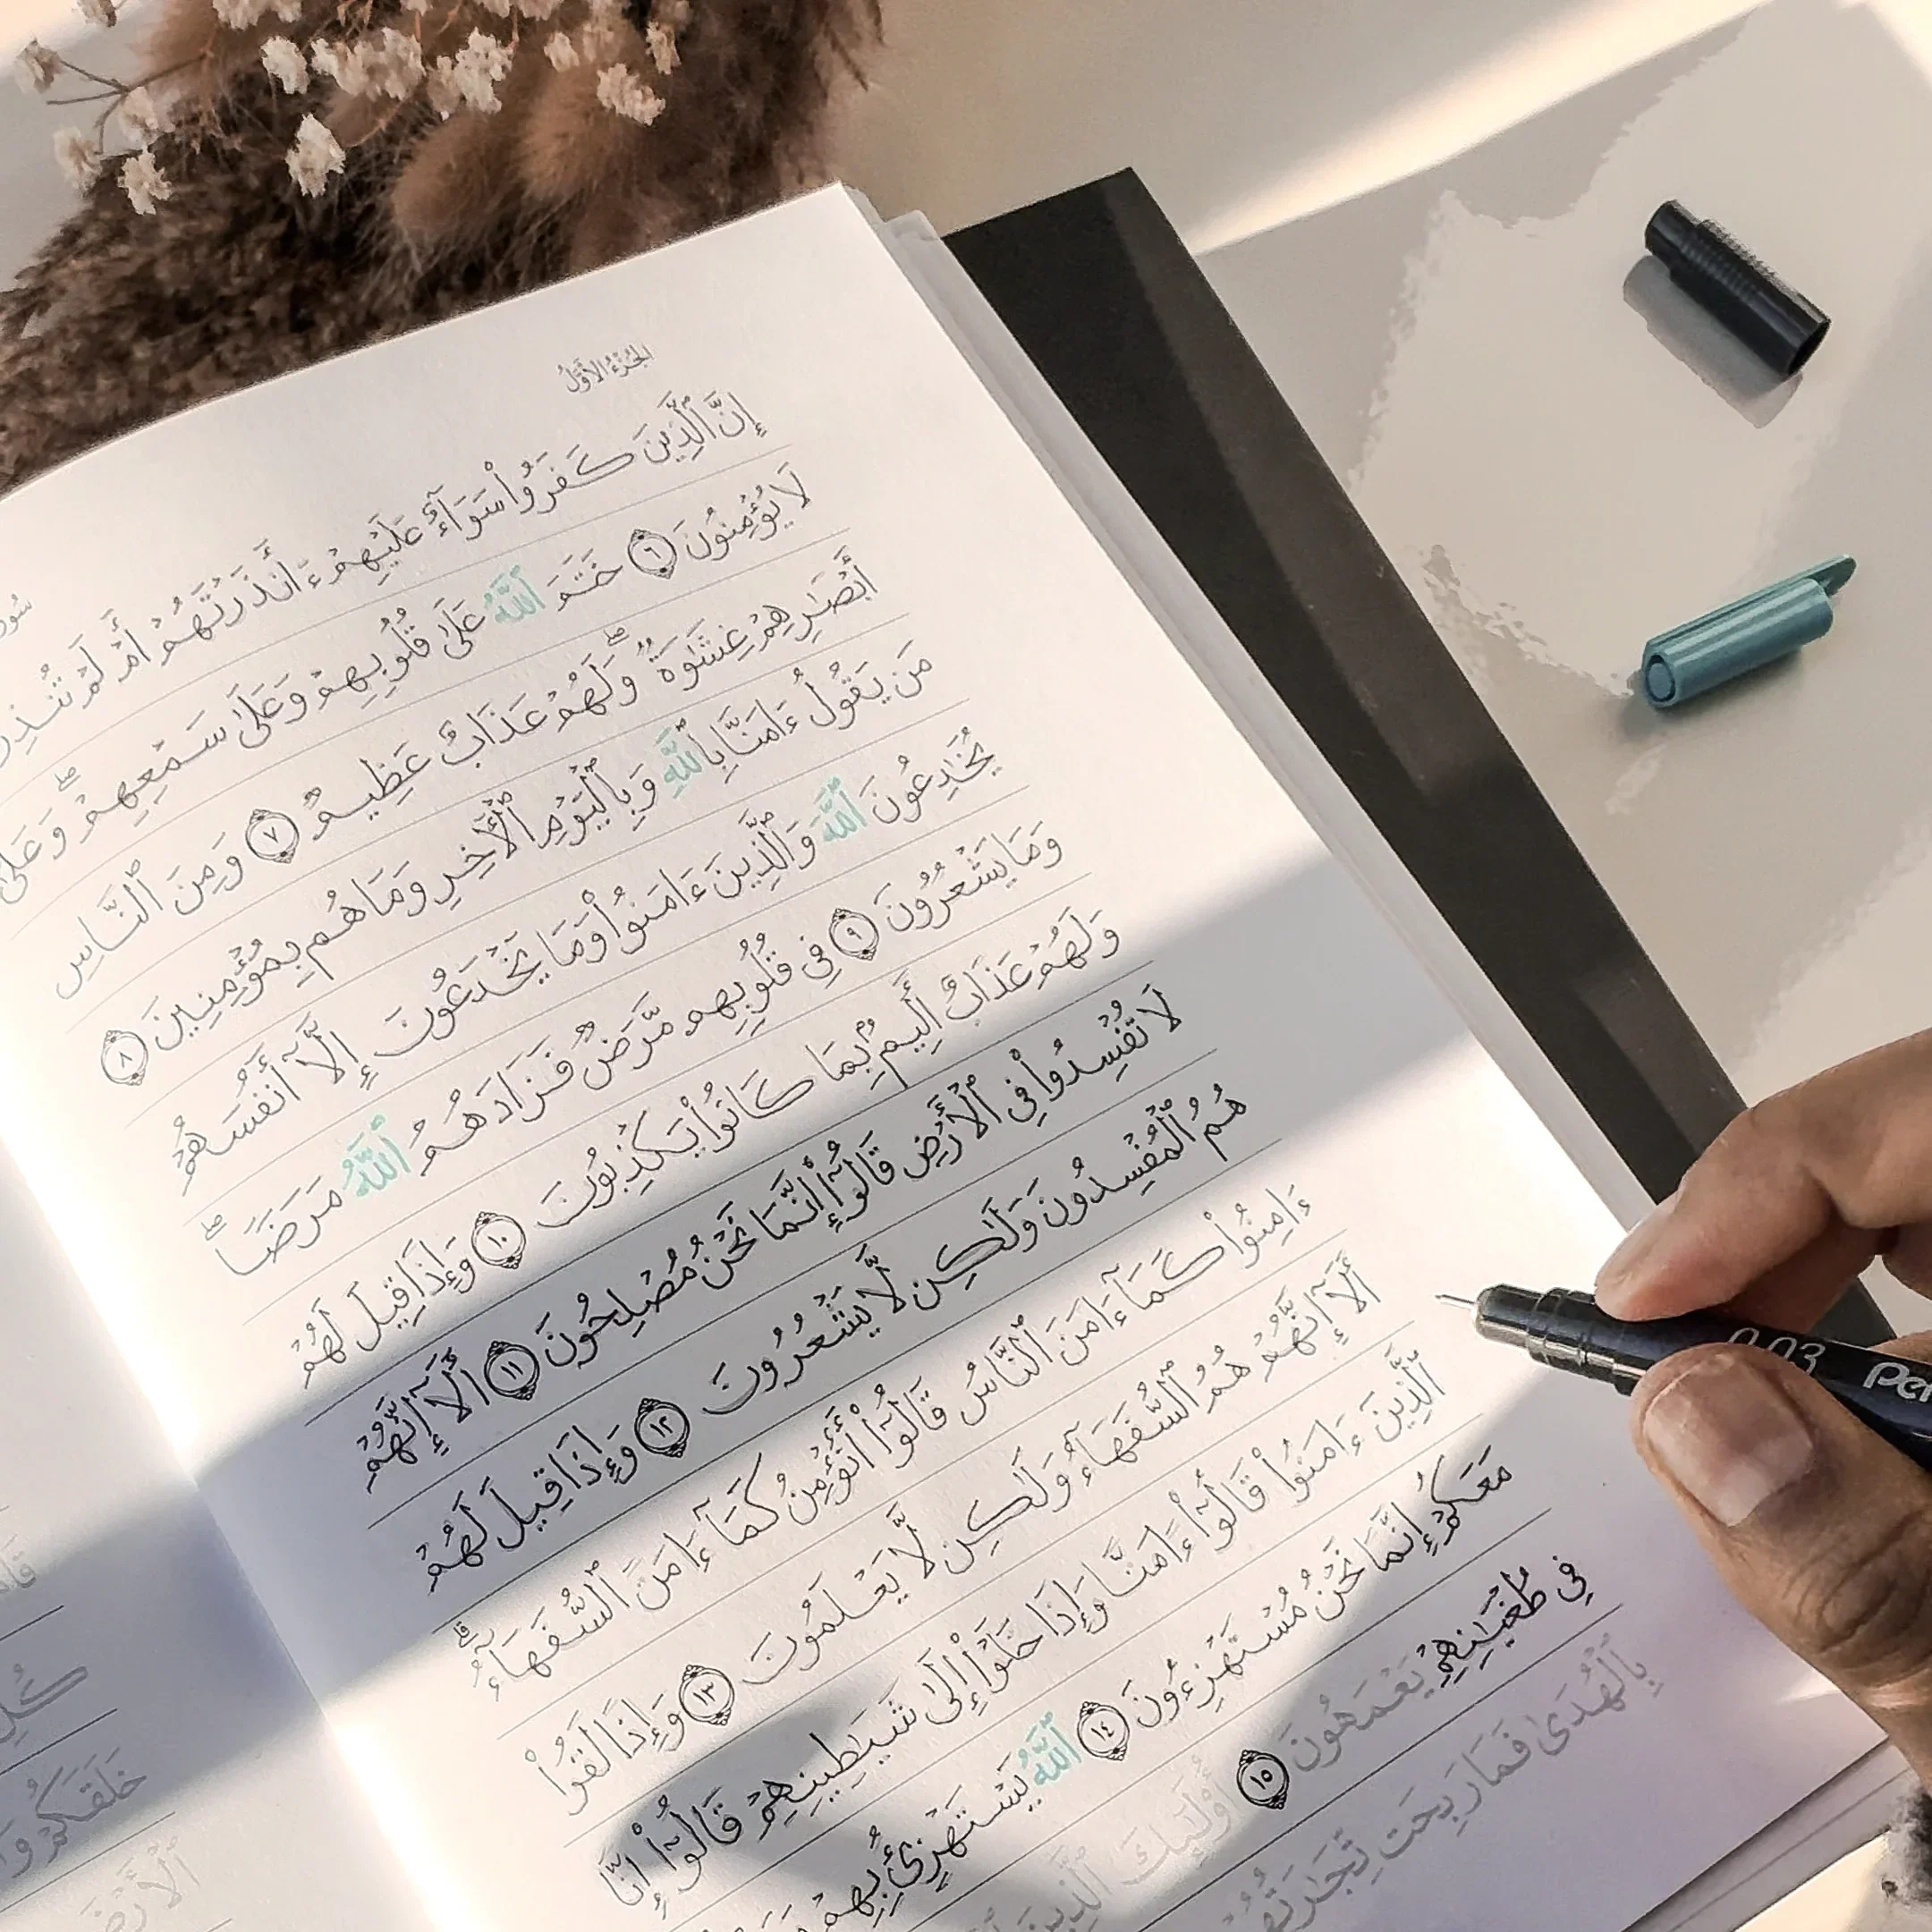 الجُزْءُ الأَوَّلُ
سُورَ
إِنَّ ٱلَّذِينَ كَفَرُوا۟ سَوَآءٌ عَلَيْهِمْ ءَأَنذَرْتَهُمْ أَمْ لَمْ تُنذِرْ
لَا يُؤْمِنُونَ ٦ خَتَمَ ٱللَّهُ عَلَىٰ قُلُوبِهِمْ وَعَلَىٰ سَمْعِهِمْ ۖ وَعَلَىٰ
أَبْصَـٰرِهِمْ غِشَـٰوَةٌ ۖ وَلَهُمْ عَذَابٌ عَظِيمٌ ٧ وَمِنَ ٱلنَّاسِ
مَن يَقُولُ ءَامَنَّا بِٱللَّهِ وَبِٱلْيَوْمِ ٱلْـَٔاخِرِ وَمَا هُم بِمُؤْمِنِينَ ٨
يُخَـٰدِعُونَ ٱللَّهَ وَٱلَّذِينَ ءَامَنُوا۟ وَمَا يَخْدَعُونَ إِلَّآ أَنفُسَهُمْ
وَمَا يَشْعُرُونَ ٩ فِى قُلُوبِهِم مَّرَضٌ فَزَادَهُمُ ٱللَّهُ مَرَضًا ۖ
وَلَهُمْ عَذَابٌ أَلِيمٌۢ بِمَا كَانُوا۟ يَكْذِبُونَ ١٠ وَإِذَا قِيلَ لَهُمْ
لَا تُفْسِدُوا۟ فِى ٱلْأَرْضِ قَالُوٓا۟ إِنَّمَا نَحْنُ مُصْلِحُونَ ١١ أَلَآ إِنَّهُمْ
هُمُ ٱلْمُفْسِدُونَ وَلَـٰكِن لَّا يَشْعُرُونَ ١٢ وَإِذَا قِيلَ لَهُمْ
ءَامِنُوا۟ كَمَآ ءَامَنَ ٱلنَّاسُ قَالُوٓا۟ أَنُؤْمِنُ كَمَآ ءَامَنَ ٱلسُّفَهَآءُ ۗ
أَلَآ إِنَّهُمْ هُمُ ٱلسُّفَهَآءُ وَلَـٰكِن لَّا يَعْلَمُونَ ١٣ وَإِذَا لَقُوا۟
ٱلَّذِينَ ءَامَنُوا۟ قَالُوٓا۟ ءَامَنَّا وَإِذَا خَلَوْا۟ إِلَىٰ شَيَـٰطِينِهِمْ قَالُوٓا۟ إِنَّا
مَعَكُمْ إِنَّمَا نَحْنُ مُسْتَهْزِءُونَ ١٤ ٱللَّهُ يَسْتَهْزِئُ بِهِمْ
فِى طُغْيَـٰنِهِمْ يَعْمَهُونَ ١٥ أُو۟لَـٰٓئِكَ ٱلَّذِينَ
بِٱلْهُدَىٰ فَمَا رَبِحَت تِّجَـٰرَتُهُمْ
خَلَقَكُمْ وَا
ٱلْأَرْضَ
0.03 Pe